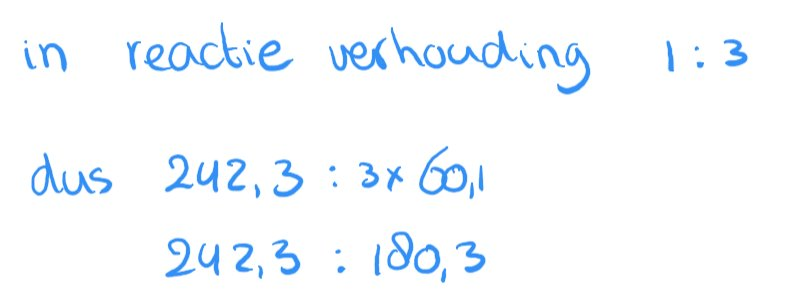 in reactie verhouding 1 : 3
dus 242,3 : 3x 60,1
242,3 : 180,3